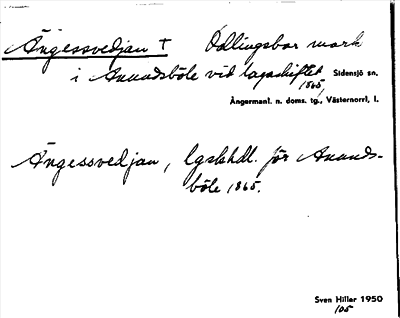 Ängessvedjan † Odlingsbar mark
i Anundsböle vid lagaskiftet Sidensjö sn.
1865,
Ångermanl. n. doms. tg., Västernorrl. l.
Ängessvedjan, lgskhdl. för Anunds-
böle 1865.
Sven Hiller 1950
105